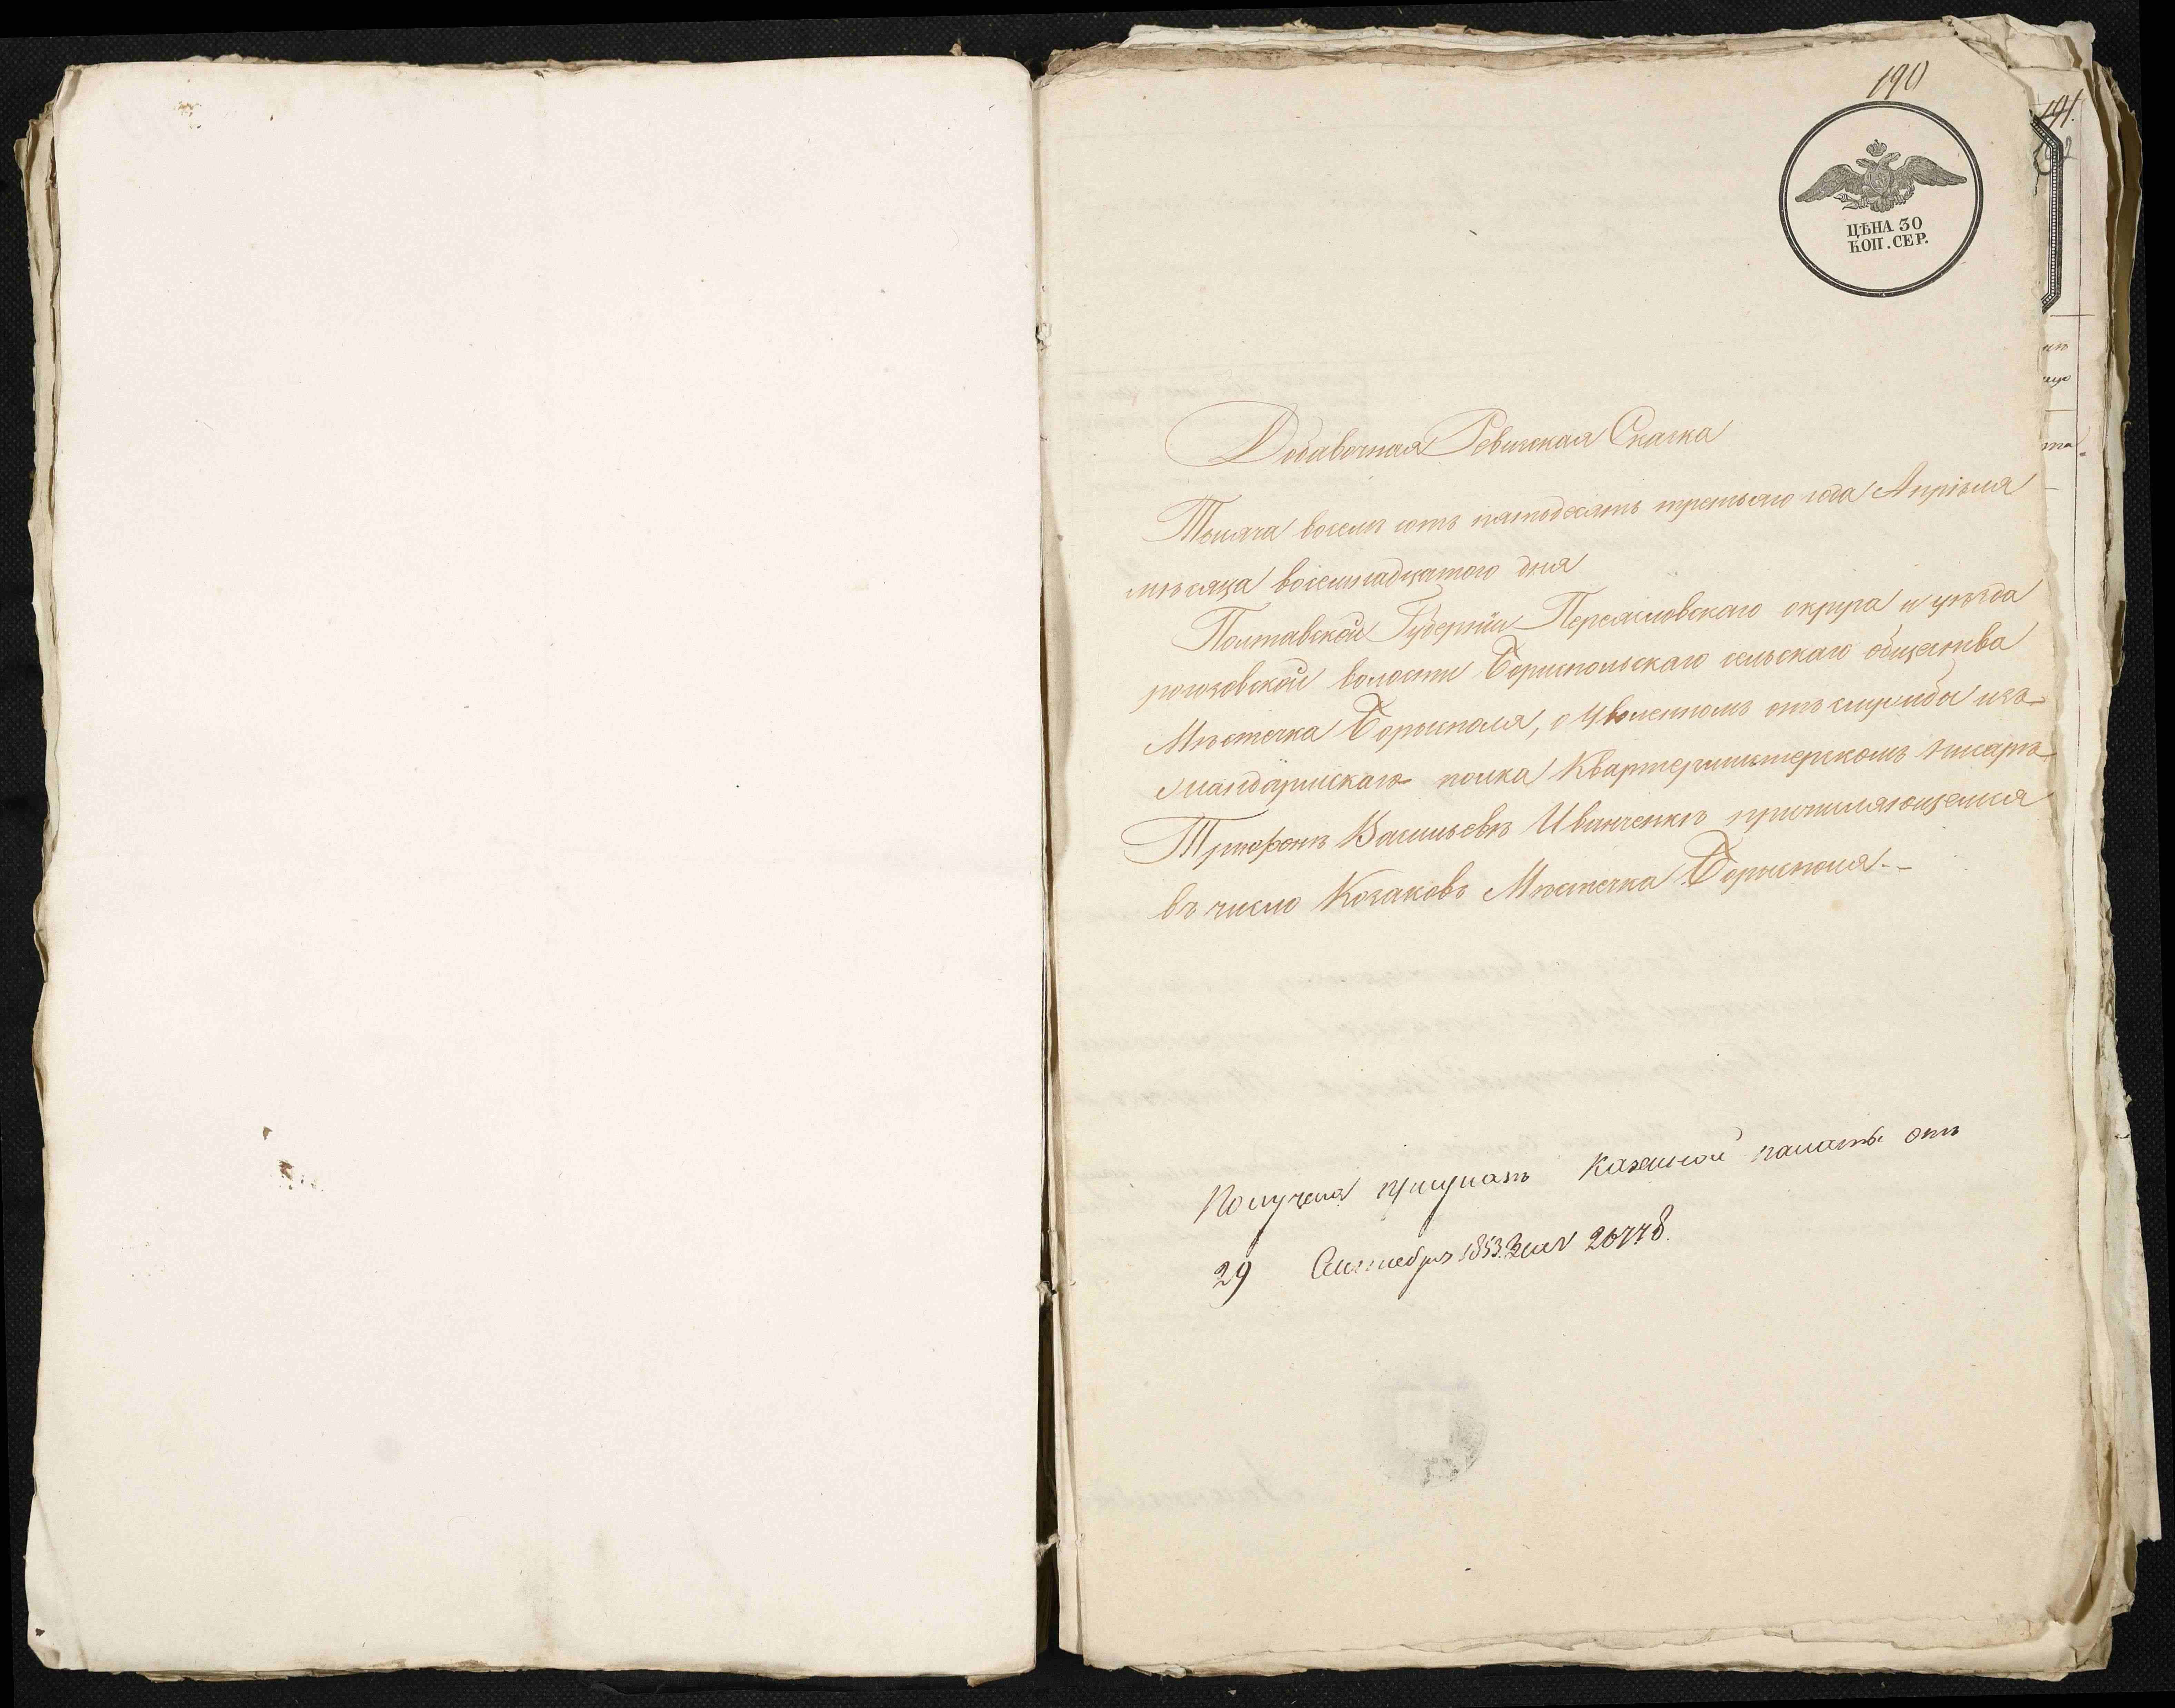 190
191.
ЦѢНА 30
КОП. СЕР.
Добавочная Ревизская Сказка
Тысяча восемь сотъ пятьдесятъ третьяго года Апрѣля
мѣсяца восемнадцатого дня
Полтавской Губерніи Переясловскаго округа и уѣзда
рогозовской волости Бориспольскаго сельскаго общества
Мѣстечка Борысполя, о Уволенномъ отъ службы изъ
жандармскаго полка Квартермистерскомъ писарѣ
Трифонѣ Васильевѣ Иванченкѣ причисляющемся
въ число Козаковъ Мѣстечка Борысполя.-
Получена при указѣ Казенной палаты отъ
29 Сентября 1853. За № 26778.